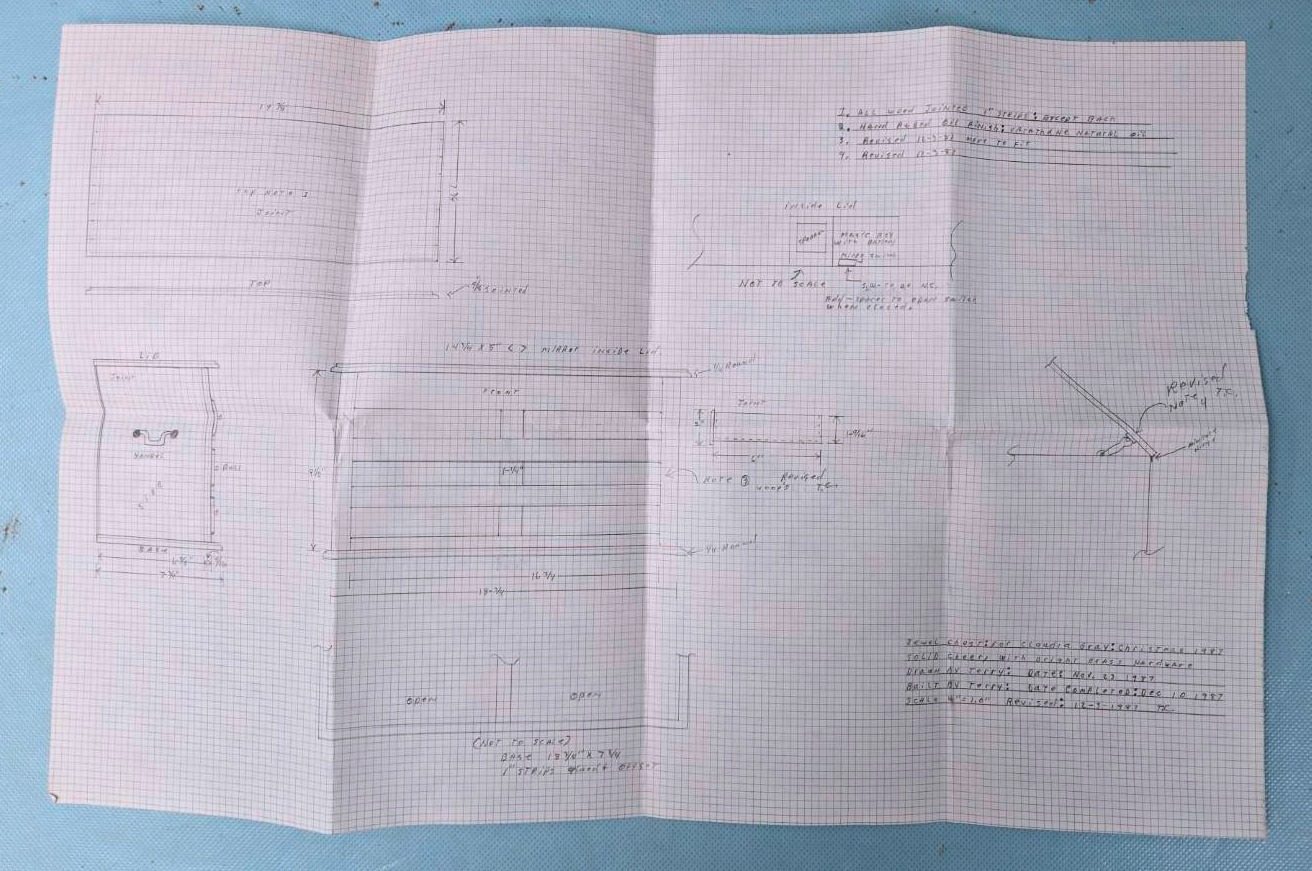 1. ALL wood Jointed 1" STRIPS: EXCEPT BACK
2. Hand Rubbed Oil Finish: URATHANE NATURAL Oil
3. Revised 12-3-87 Made To Fit
4. Revised 12-3-87
TOP NOTE 1
JOINT
TOP
Jointed
Inside Lid
Speaker
Music Box
with Battery
Micro Switch
NOT TO SCALE
Switch to be N.C.
Add-spacer to open switch
when closed.
14 3/4 X 5 MIRROR Inside Lid.
LID
JOINT
HANDLE
SIDE
BASE
6 3/4
7 3/4
1/4 Round
FRONT
9 1/2
1-1/4"
JOINT
6"
Note 3
Revised
T.C.
1/4 Round
16 3/4
18-3/4
Revised
Note 4 T.C.
OPEN
OPEN
(NOT TO SCALE)
BASE 18 3/4" X 7 3/4
1" STRIPS OFFSET
Jewel Chest: For Claudia Gray: Christmas 1987
SOLID Cherry with Bright Brass Hardware
Drawn By Terry: DATE: Nov. 27 1987
Built By Terry: Date Completed: Dec 10 1987
Scale 4"=1.0" Revised: 12-3-1987 T.C.